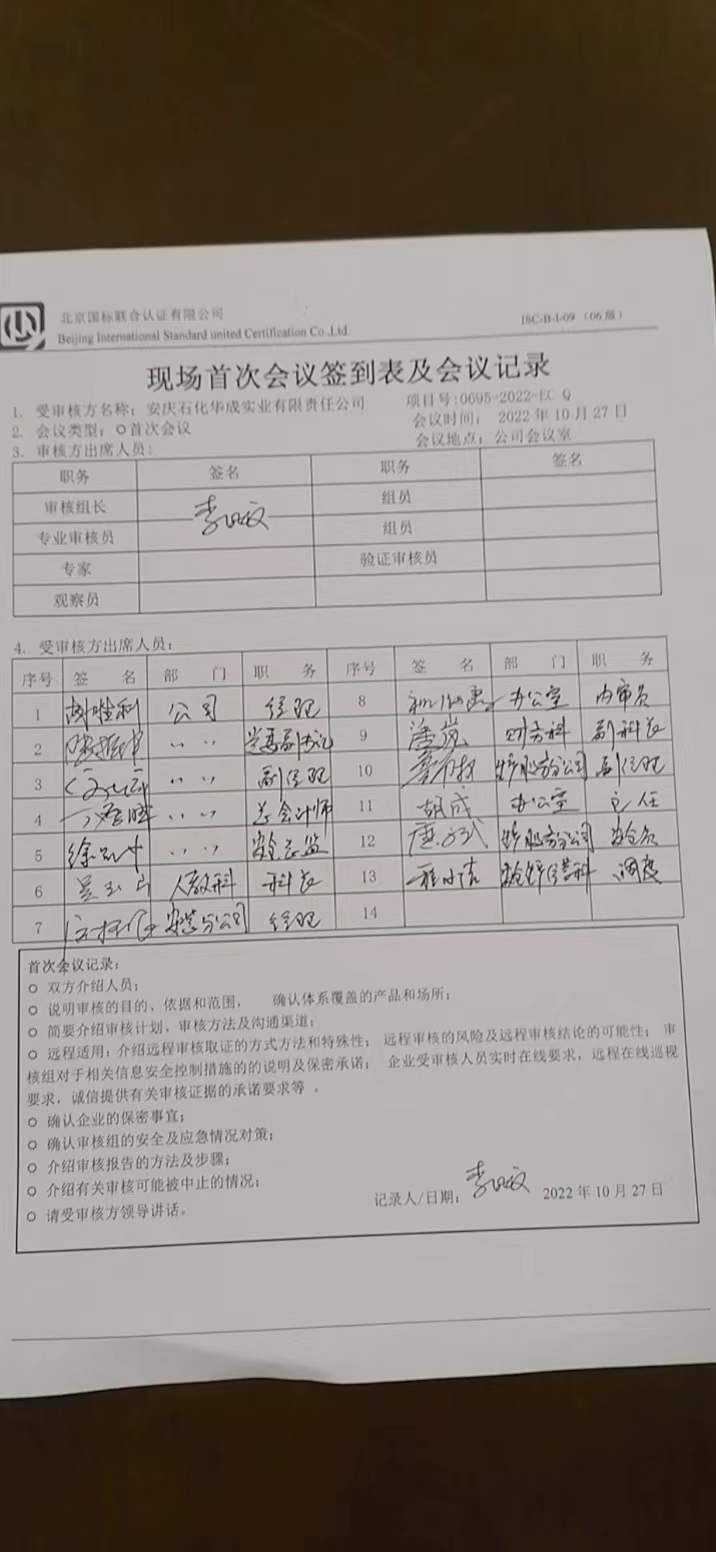 北京国标联合认证有限公司 ISC-B-I-09 (06版)
Beijing International Standard united Certification Co.,Ltd.
现场首次会议签到表及会议记录
1. 受审核方名称：安庆石化华成实业有限责任公司 项目号:0695-2022-EC Q
2. 会议类型：O首次会议 会议时间： 2022年10月27日
3. 审核方出席人员: 会议地点：公司会议室
职务 签名 职务 签名
审核组长 组员
专业审核员 组员
专家 验证审核员
观察员
4. 受审核方出席人员：
序号 签 名 部 门 职 务 序号 签 名 部 门 职 务
1 公司 经理 8 办公室 内审员
2 〃 〃 党委副书记 9 潘岚 财务科 副科长
3 〃 〃 副经理 10 分公司 副经理
4 〃 〃 总会计师 11 胡成 办公室 主任
5 〃 〃 安全总监 12 分公司
6 人教科 科长 13 调度
7 分公司 经理 14
首次会议记录：
O 双方介绍人员；
O 说明审核的目的、依据和范围， 确认体系覆盖的产品和场所；
O 简要介绍审核计划、审核方法及沟通渠道；
O 远程适用：介绍远程审核取证的方式方法和特殊性； 远程审核的风险及远程审核结论的可能性； 审
核组对于相关信息安全控制措施的的说明及保密承诺； 企业受审核人员实时在线要求，远程在线巡视
要求，诚信提供有关审核证据的承诺要求等 。
O 确认企业的保密事宜；
O 确认审核组的安全及应急情况对策；
O 介绍审核报告的方法及步骤；
O 介绍有关审核可能被中止的情况；
O 请受审核方领导讲话。
记录人/日期： 2022年10月27日